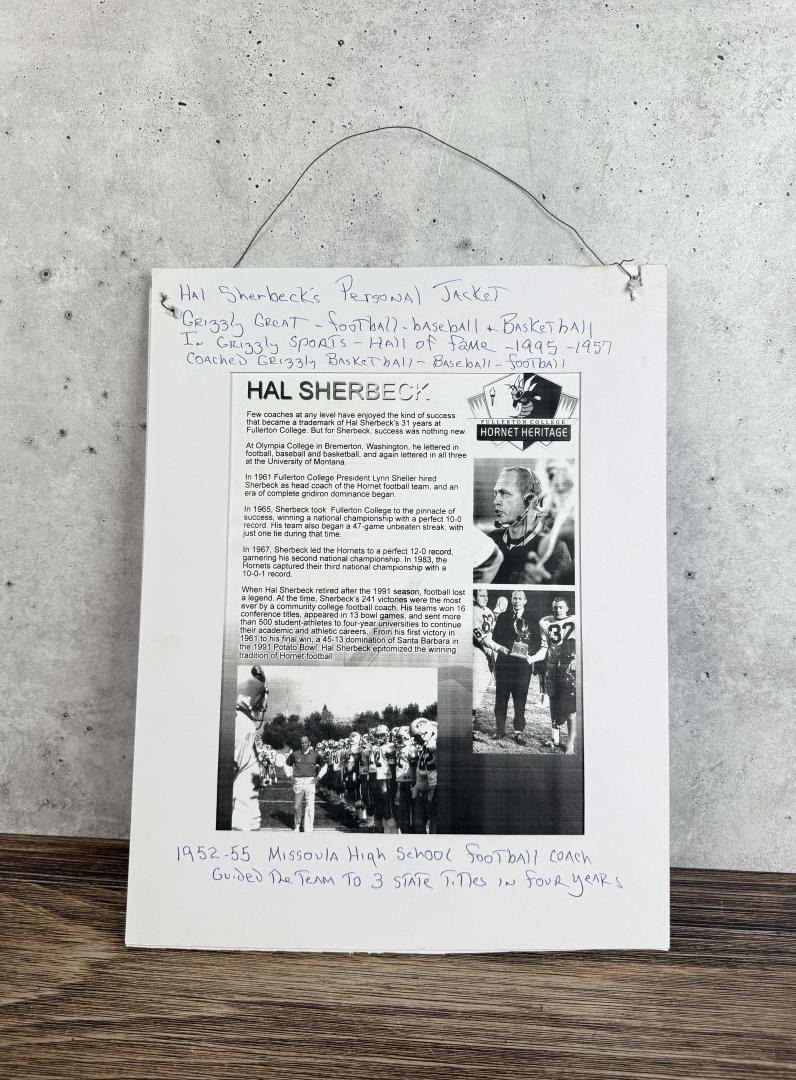 Hal Sherbeck's Personal Jacket
Grizzly Great - football - baseball + Basketball
In Grizzly Sports - Hall of fame - 1995 - 1957
Coached Grizzly Basketball - Baseball - football
HAL SHERBECK
FULLERTON COLLEGE
HORNET HERITAGE
Few coaches at any level have enjoyed the kind of success
that became a trademark of Hal Sherbeck's 31 years at
Fullerton College. But for Sherbeck, success was nothing new.
At Olympia College in Bremerton, Washington, he lettered in
football, baseball and basketball, and again lettered in all three
at the University of Montana.
In 1961 Fullerton College President Lynn Sheller hired
Sherbeck as head coach of the Hornet football team, and an
era of complete gridiron dominance began.
In 1965, Sherbeck took Fullerton College to the pinnacle of
success, winning a national championship with a perfect 10-0
record. His team also began a 47-game unbeaten streak, with
just one tie during that time.
In 1967, Sherbeck led the Hornets to a perfect 12-0 record,
garnering his second national championship. In 1983, the
Hornets captured their third national championship with a
10-0-1 record.
When Hal Sherbeck retired after the 1991 season, football lost
a legend. At the time, Sherbeck's 241 victories were the most
ever by a community college football coach. His teams won 16
conference titles, appeared in 13 bowl games, and sent more
than 500 student-athletes to four-year universities to continue
their academic and athletic careers. From his first victory in
1961 to his final win, a 45-13 domination of Santa Barbara in
the 1991 Potato Bowl, Hal Sherbeck epitomized the winning
tradition of Hornet football.
32
1952-55 Missoula High School football coach
Guided the Team To 3 State Titles in four years